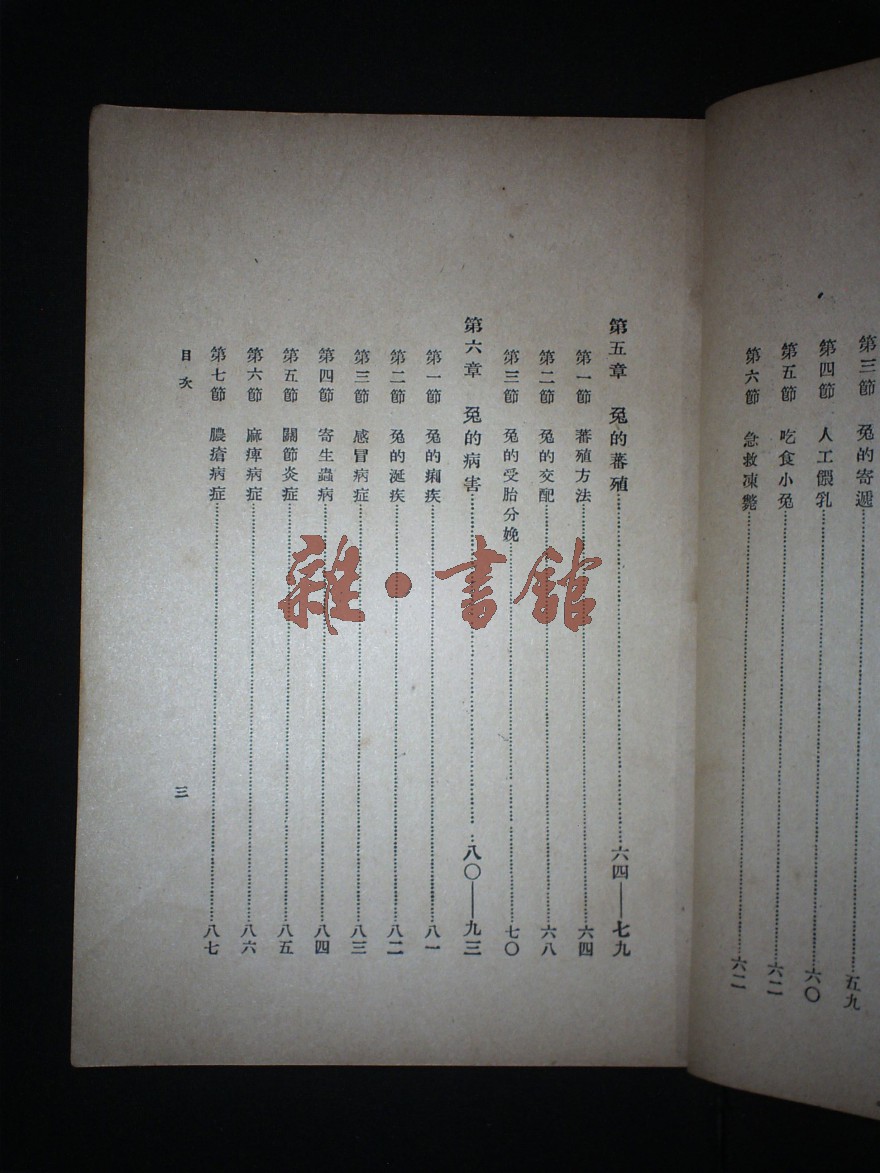 第三節　兔的寄遞……五九
第四節　人工餵乳……六〇
第五節　吃食小兔……六二
第六節　急救凍斃……六二
第五章　兔的蕃殖……六四——七九
第一節　蕃殖方法……六四
第二節　兔的交配……六八
第三節　兔的受胎分娩……七〇
第六章　兔的病害……八〇——九三
第一節　兔的痢疾……八一
第二節　兔的涎疾……八二
第三節　感冒病症……八三
第四節　寄生蟲病……八四
第五節　關節炎症……八五
第六節　麻痺病症……八六
第七節　膿瘡病症……八七
目次
三
雜·書館